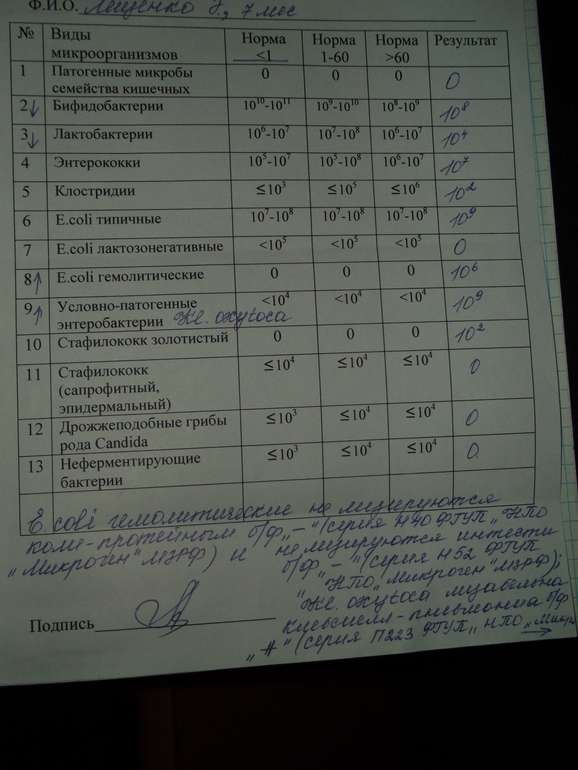 Ф.И.О. Лященко В., 7 мес
№ Виды микроорганизмов Норма <1 Норма 1-60 Норма >60 Результат
1 Патогенные микробы семейства кишечных 0 0 0 0
2↓ Бифидобактерии 10¹⁰-10¹¹ 10⁹-10¹⁰ 10⁸-10⁹ 10⁸
3↓ Лактобактерии 10⁶-10⁷ 10⁷-10⁸ 10⁶-10⁷ 10⁴
4 Энтерококки 10⁵-10⁷ 10⁵-10⁸ 10⁶-10⁷ 10⁷
5 Клостридии ≤10³ ≤10⁵ ≤10⁶ 10²
6 E.coli типичные 10⁷-10⁸ 10⁷-10⁸ 10⁷-10⁸ 10⁹
7 E.coli лактозонегативные <10⁵ <10⁵ <10⁵ 0
8↑ E.coli гемолитические 0 0 0 10⁶
9↑ Условно-патогенные энтеробактерии Kl. oxytoca <10⁴ <10⁴ <10⁴ 10⁹
10 Стафилококк золотистый 0 0 0 10²
11 Стафилококк (сапрофитный, эпидермальный) ≤10⁴ ≤10⁴ ≤10⁴ 0
12 Дрожжеподобные грибы рода Candida ≤10³ ≤10⁴ ≤10⁴ 0
13 Неферментирующие бактерии ≤10³ ≤10⁴ ≤10⁴ 0
E. coli гемолитические не лизируются
коли-протейным б/ф „–" (серия Н40 ФГУП „НПО
„Микроген" МЗРФ) и не лизируются интести
б/ф „–" (серия Н52 ФГУП
„НПО „Микроген" МЗРФ);
Kl. oxytoca лизабельна
клебсиелл-пневмониа б/ф
„#" (серия П223 ФГУП „НПО „Микр →
Подпись